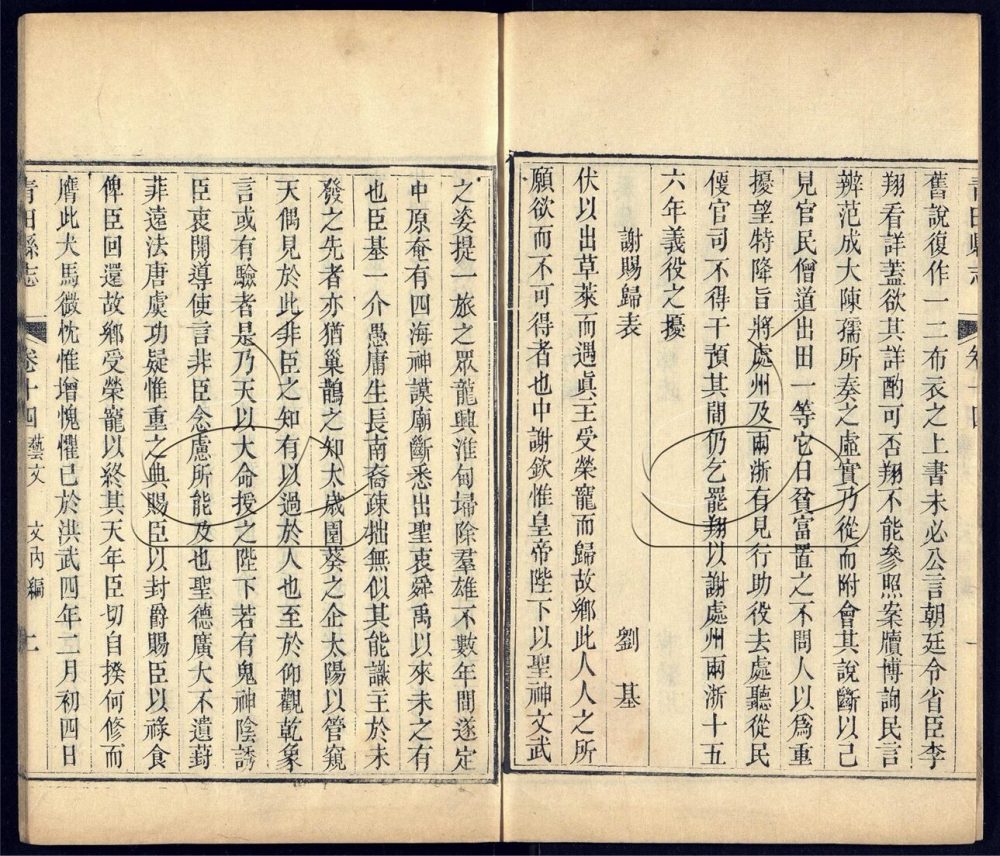 青田縣志 卷十四
舊說復作一二布衣之上書未必公言朝廷令省臣李
翔看詳蓋欲其詳酌可否翔不能參照案牘博詢民言
辨范成大陳孺所奏之虛實乃從而附會其說斷以己
見官民僧道出田一等它日貧富置之不問人以爲重
擾望特降旨將處州及兩浙有見行助役去處聽從民
便官司不得干預其間仍乞罷翔以謝處州兩浙十五
六年義役之擾
謝賜歸表 劉基
伏以出草萊而遇眞王受榮寵而歸故鄉此人人之所
願欲而不可得者也中謝欽惟皇帝陛下以聖神文武
之姿提一旅之眾龍興淮甸埽除羣雄不數年間遂定
中原奄有四海神謨廟斷悉出聖衷舜禹以來未之有
也臣基一介愚庸生長南裔疎拙無似其能識主於未
發之先者亦猶巢鵲之知太歲園葵之企太陽以管窺
天偶見於此非臣之知有以過於人也至於仰觀乾象
言或有驗者是乃天以大命授之陛下若有鬼神陰誘
臣衷開導使言非臣念慮所能及也聖德廣大不遺葑
菲遠法唐虞功疑惟重之典賜臣以封爵賜臣以祿食
俾臣回還故鄉受榮寵以終其天年臣切自揆何修而
膺此犬馬微忱惟增愧懼已於洪武四年二月初四日
青田縣志 卷十四 藝文 文內編